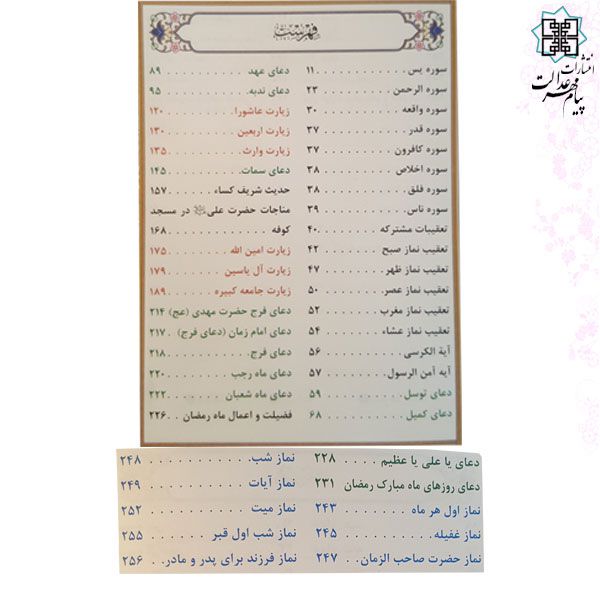 انتشارات
پیام مهر عدالت
فهرست
سوره یس . . . . . . . . . . . . ۱۱
سوره الرحمن . . . . . . . . . . ۲۳
سوره واقعه . . . . . . . . . . . ۳۰
سوره قدر . . . . . . . . . . . . ۳۷
سوره کافرون . . . . . . . . . . ۳۷
سوره اخلاص . . . . . . . . . . ۳۸
سوره فلق . . . . . . . . . . . . ۳۸
سوره ناس . . . . . . . . . . . . ۳۹
تعقیبات مشترکه . . . . . . . . ۴۰
تعقیب نماز صبح . . . . . . . . ۴۲
تعقیب نماز ظهر . . . . . . . . ۴۷
تعقیب نماز عصر . . . . . . . . ۵۰
تعقیب نماز مغرب . . . . . . . ۵۲
تعقیب نماز عشاء . . . . . . . ۵۴
آیة الکرسی . . . . . . . . . . . ۵۶
آیه آمن الرسول . . . . . . . . . ۵۷
دعای توسل . . . . . . . . . . . ۵۹
دعای کمیل . . . . . . . . . . . ۶۸
دعای عهد . . . . . . . . . . . ۸۹
دعای ندبه . . . . . . . . . . . ۹۵
زیارت عاشورا . . . . . . . . . ۱۲۰
زیارت اربعین . . . . . . . . . ۱۳۰
زیارت وارث . . . . . . . . . . ۱۳۵
دعای سمات . . . . . . . . . . ۱۴۵
حدیث شریف کساء . . . . . . ۱۵۷
مناجات حضرت علی در مسجد
کوفه . . . . . . . . . . . . . . ۱۶۸
زیارت امین الله . . . . . . . . ۱۷۵
زیارت آل یاسین . . . . . . . . ۱۷۹
زیارت جامعه کبیره . . . . . . ۱۸۹
دعای فرج حضرت مهدی (عج) ۲۱۴
دعای امام زمان (دعای فرج) . ۲۱۷
دعای فرج . . . . . . . . . . . ۲۱۸
دعای ماه رجب . . . . . . . . ۲۲۰
دعای ماه شعبان . . . . . . . ۲۲۲
فضیلت و اعمال ماه رمضان . . ۲۲۶
دعای یا علی یا عظیم . . . . ۲۲۸
دعای روزهای ماه مبارک رمضان ۲۳۱
نماز اول هر ماه . . . . . . . ۲۴۳
نماز غفیله . . . . . . . . . . ۲۴۵
نماز حضرت صاحب الزمان . . ۲۴۷
نماز شب . . . . . . . . . . . ۲۴۸
نماز آیات . . . . . . . . . . ۲۴۹
نماز میت . . . . . . . . . . ۲۵۲
نماز شب اول قبر . . . . . . ۲۵۵
نماز فرزند برای پدر و مادر . . ۲۵۶